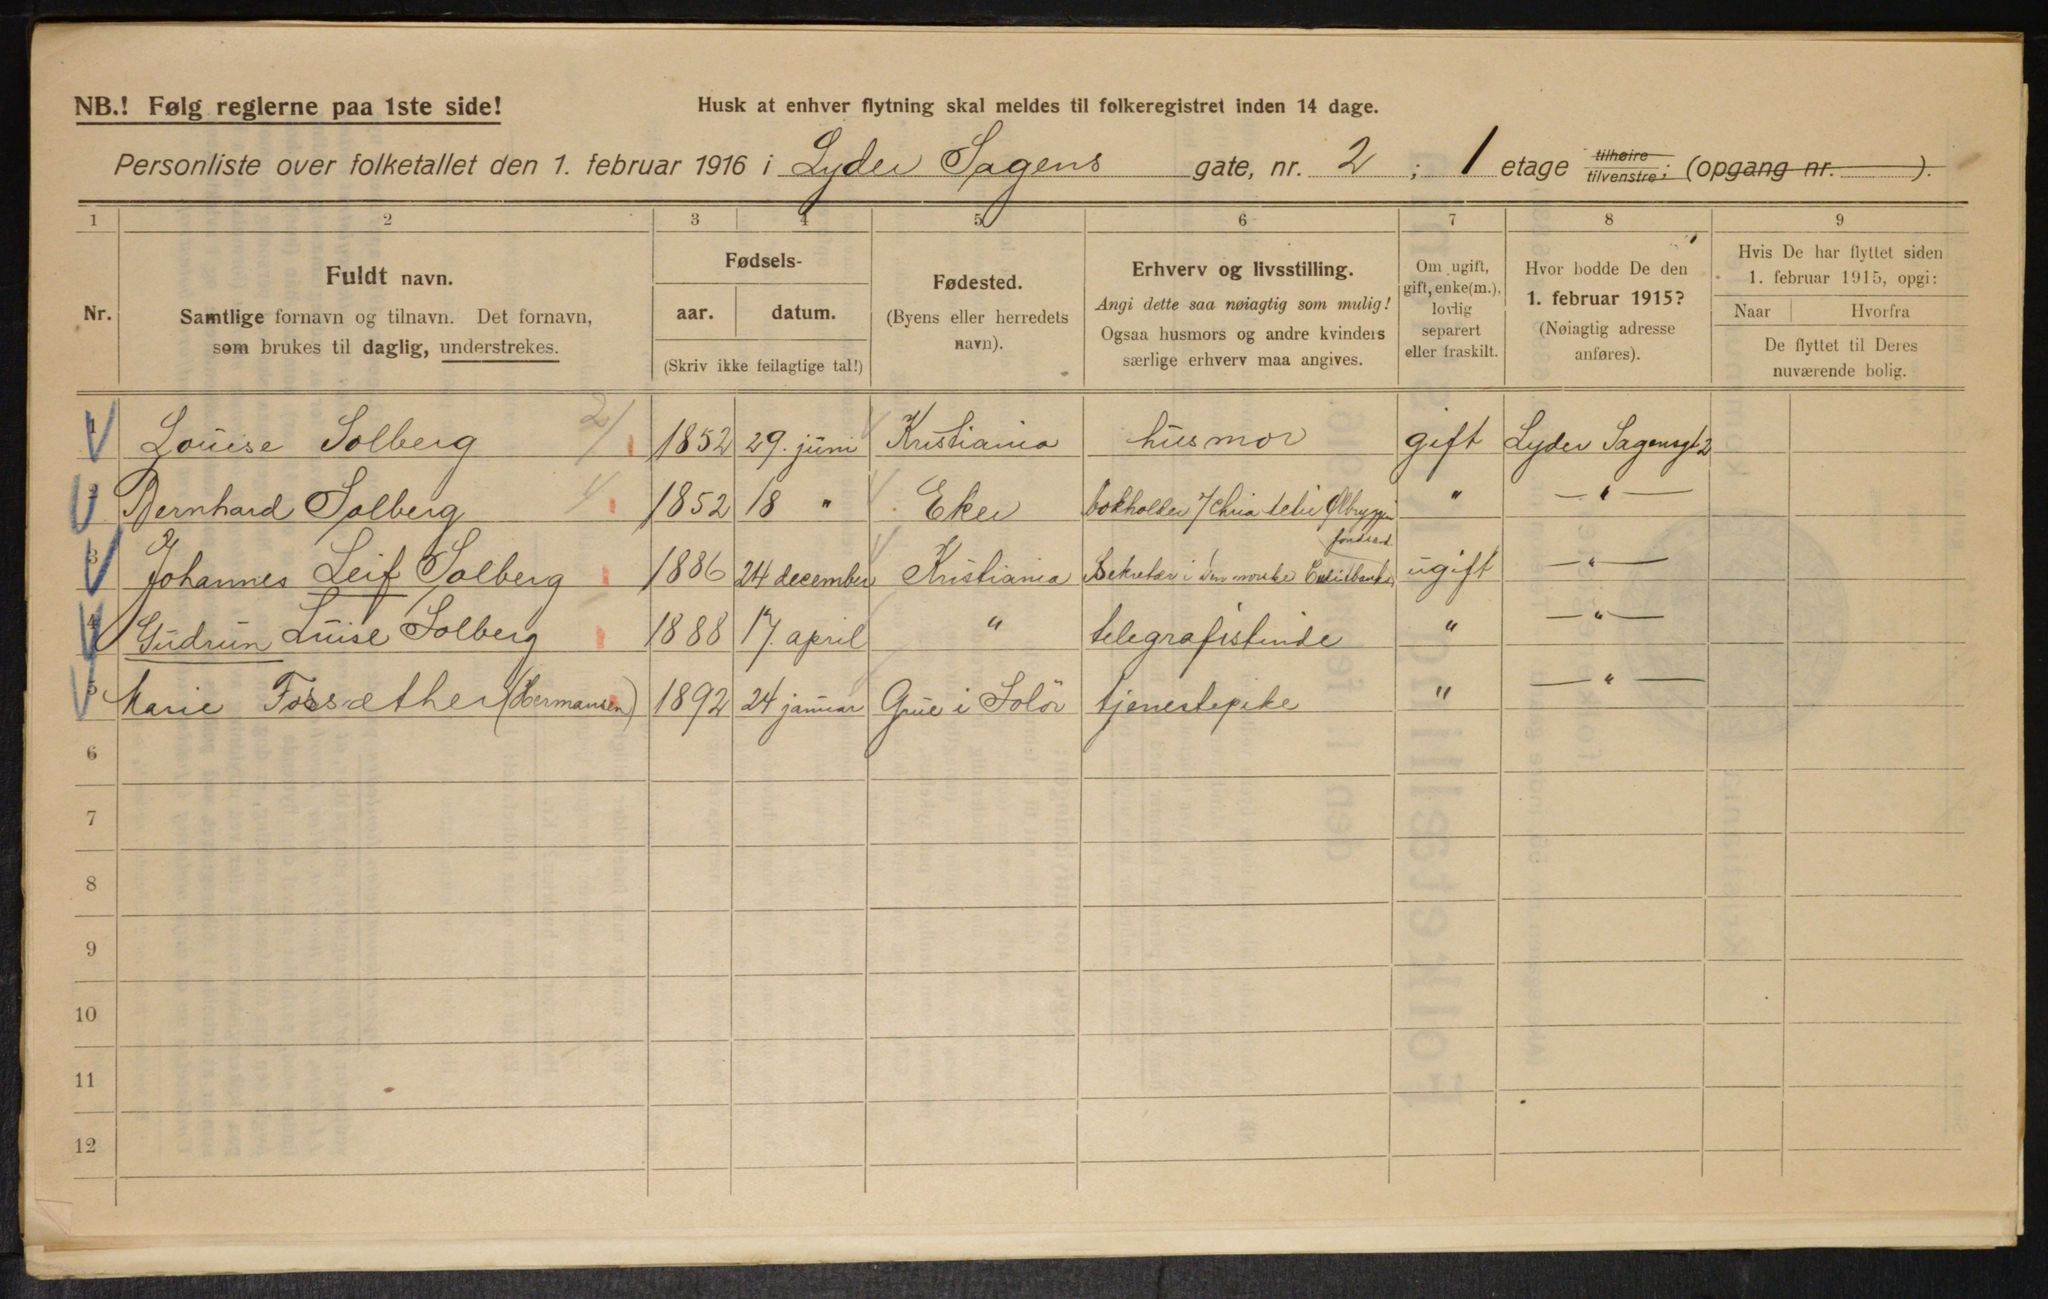 NB.! Følg reglerne paa 1ste side!
Husk at enhver flytning skal meldes til folkeregistret inden 14 dage.
Personliste over folketallet den 1. februar 1916 i Lyder Sagens gate, nr. 2 ; 1 etage tilhøire tilvenstre ; (opgang nr. ).
1 2 3 4 5 6 7 8 9
Nr.
Fuldt navn.
Samtlige fornavn og tilnavn. Det fornavn,
som brukes til daglig, understrekes.
Fødsels-
aar. datum.
(Skriv ikke feilagtige tal!)
Fødested.
(Byens eller herredets
navn).
Erhverv og livsstilling.
Angi dette saa nøiagtig som mulig!
Ogsaa husmors og andre kvinders
særlige erhverv maa angives.
Om ugift,
gift, enke(m.),
lovlig
separert
eller fraskilt.
Hvor bodde De den
1. februar 1915?
(Nøiagtig adresse
anføres).
Hvis De har flyttet siden
1. februar 1915, opgi:
Naar Hvorfra
De flyttet til Deres
nuværende bolig.
1 Louise Solberg 2/ 1852 29. juni Kristiania husmor gift Lyder Sagensgt 2
2 Bernhard Solberg 1852 18 " Eker bokholder " — " —
3 Johannes Leif Solberg 1886 24 december Kristiania Sekretær i den norske ugift — " —
4 Gudrun Luise Solberg 1888 17. april " telegrafistinde " — " —
5 Marie Forsæther (Hermansen) 1892 24 januar Grue i Solör tjenestepike " — " —
6
7
8
9
10
11
12